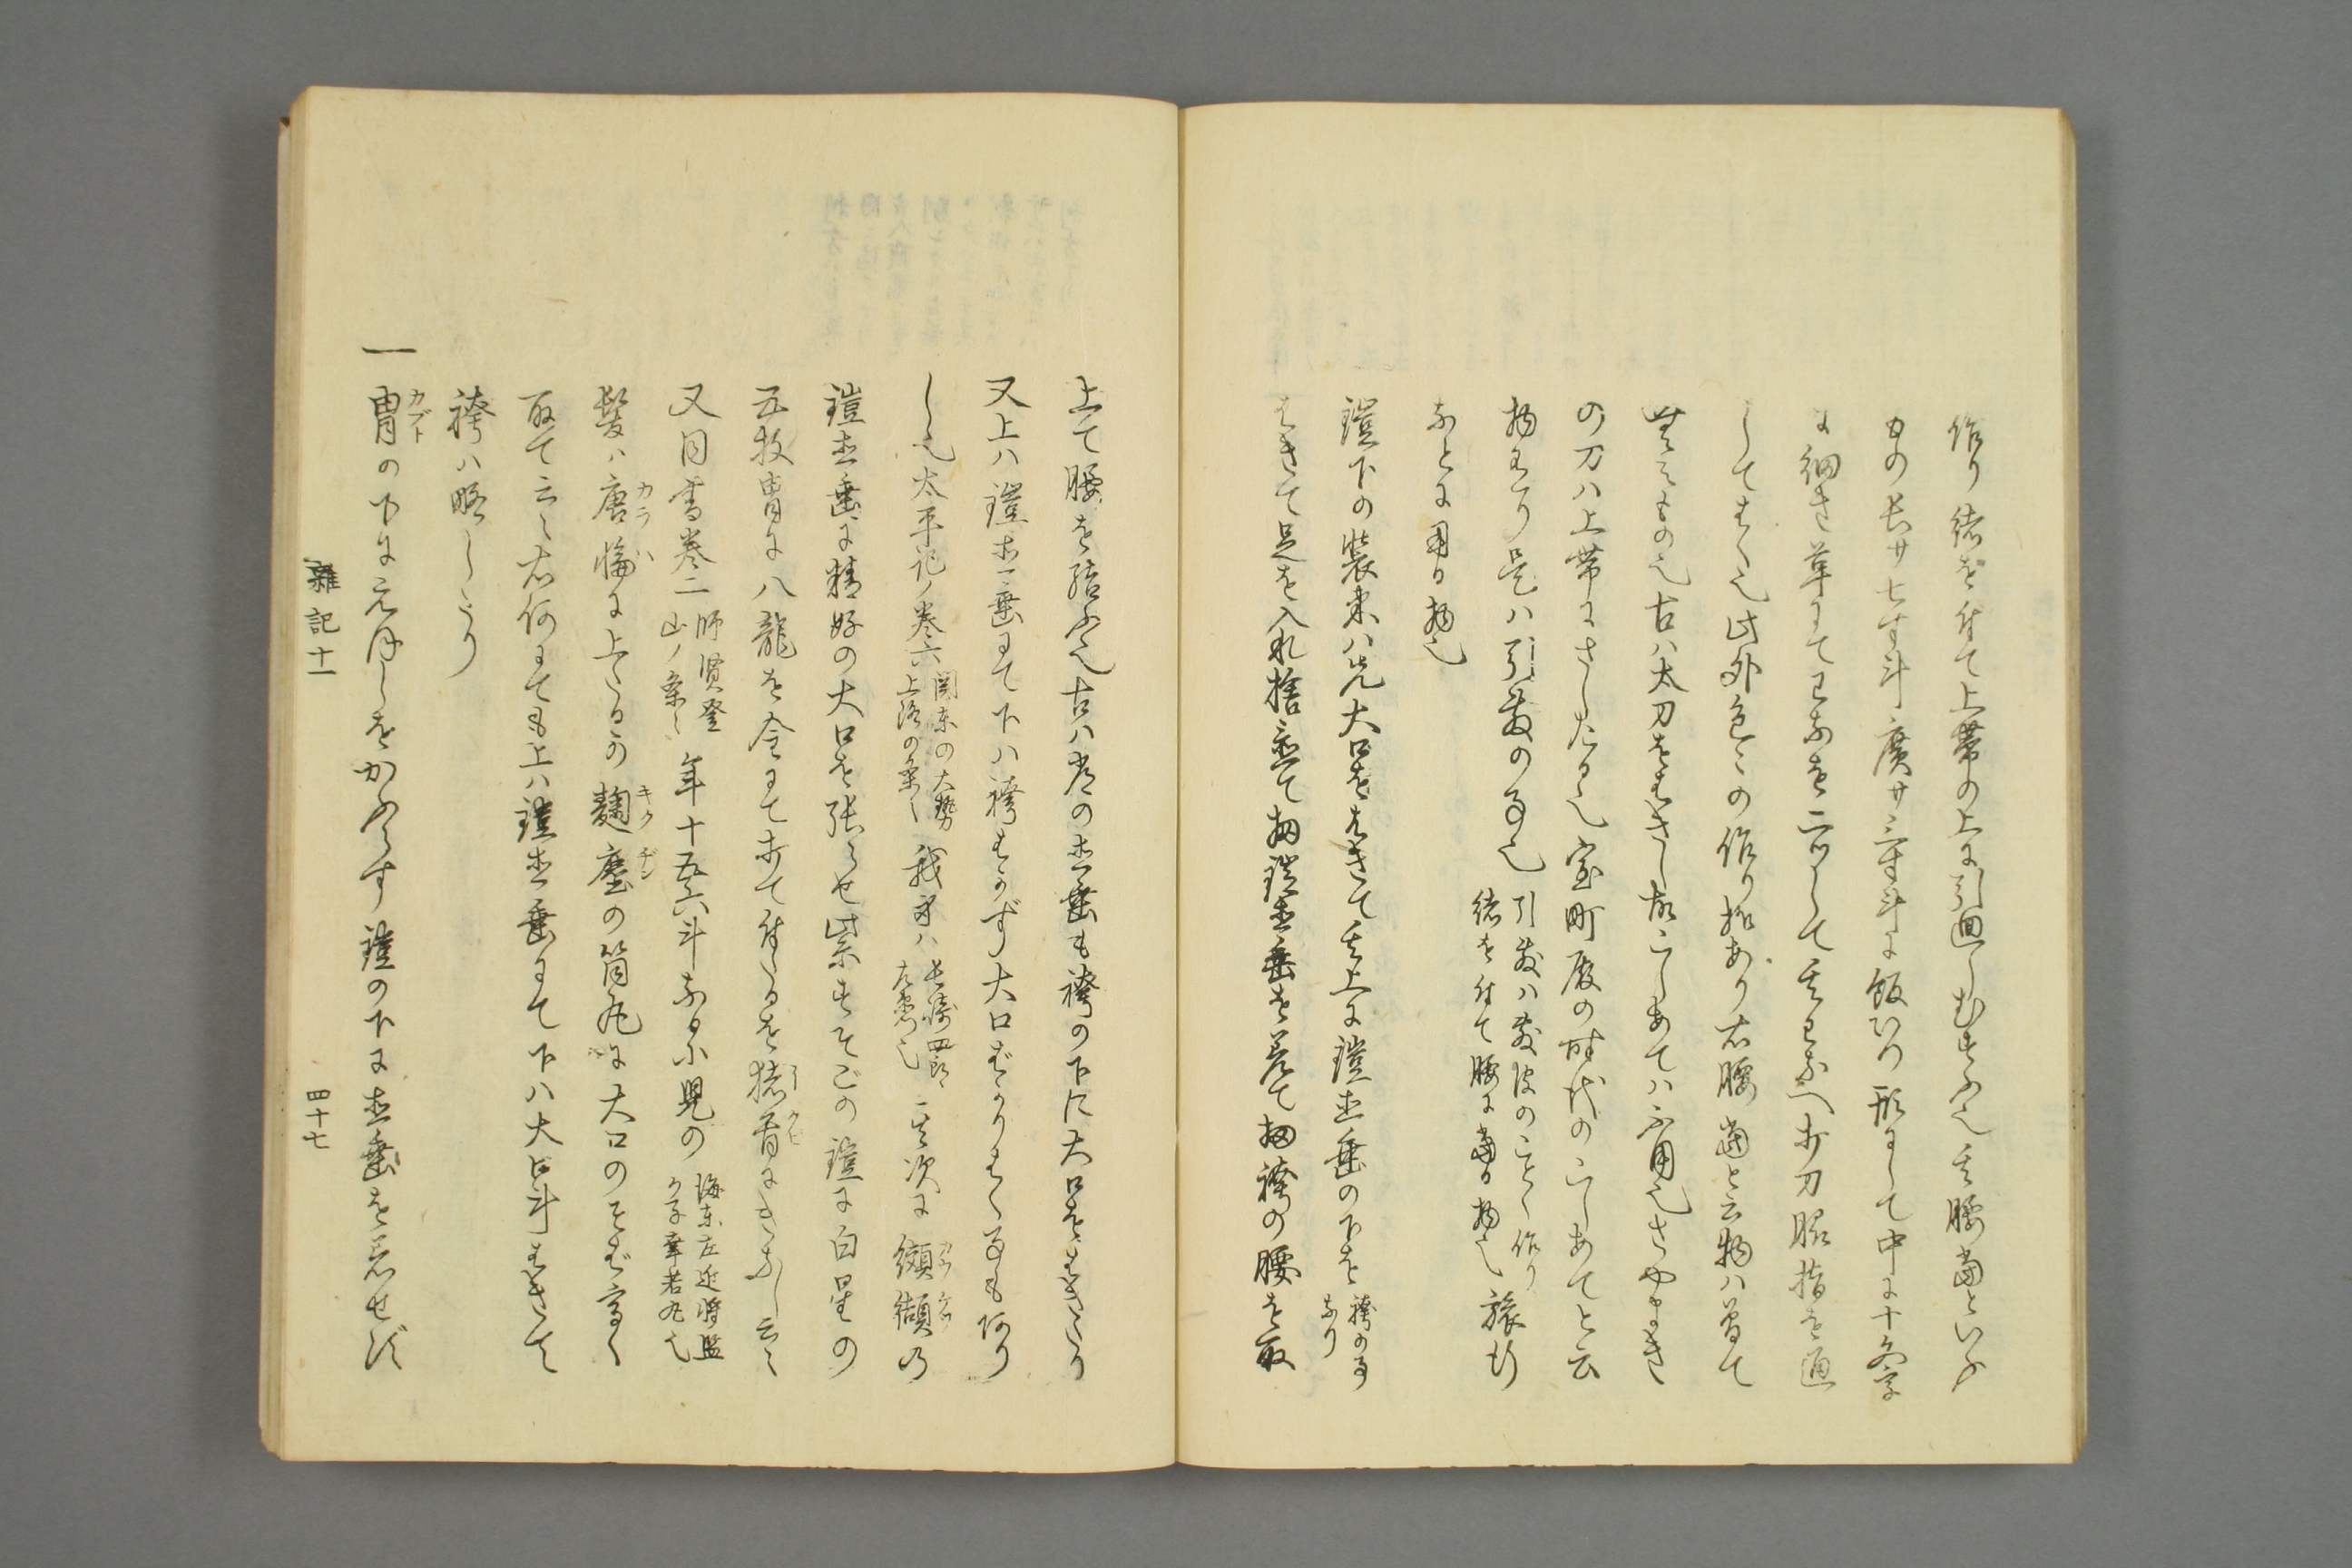 作り緒を付て上帯の上に引廻しむすふ也其腰当といふ
もの長サ七寸斗廣サ三寸斗に飯ひつ形にして中に十文字
に細き革にてわなを二ツして其わなへ打刀脇指を通
してはく也此外色々の作り様あり右腰当と云物は曽て
無きもの也古ハ太刀をはきし故こしあてハ不用也さやまき
の刀ハ上帯にさしたる也室町殿の時代のこしあてと云
物あり是ハ引敷の事也
引敷ハ敷皮のことく作り
緒を付て腰に当る物也
旅行
なとに用る物也
鎧下の装束ハ先大口をはきて其上に鎧直垂の下を
袴の事
なり
はきて足を入れ捨置て扨鎧直垂を着て扨袴の腰を取
上て腰を結ふ也古ハ常の直垂も袴の下に大口をはきたり
又上ハ鎧直垂にて下ハ袴をきず大口ばかりはく事も有
し也太平記ノ巻六
関東の大勢
上洛の条ニ
我身ハ
長崎四郎
左衛門也
其次に纐纈の
鎧直垂に精好の大口を張らせ紫すそごの鎧に白星の
五枚冑に八龍を金にて打て付たるを猪首にきなし云々
又同書巻二
師賢登
山ノ条ニ
年十五六斗なる小児の
海東左近将監
カ子幸若丸也
髪ハ唐輪に上たるか麹塵の筒丸に大口のそば高く
取て云々右何にても上ハ鎧直垂にて下ハ大口斗はきて
袴ハ略しゝなり
一冑の下にえほしをかふらす鎧の下に直垂を着せず
カブト
カラ
キク ヂン
雑記十一
四十七